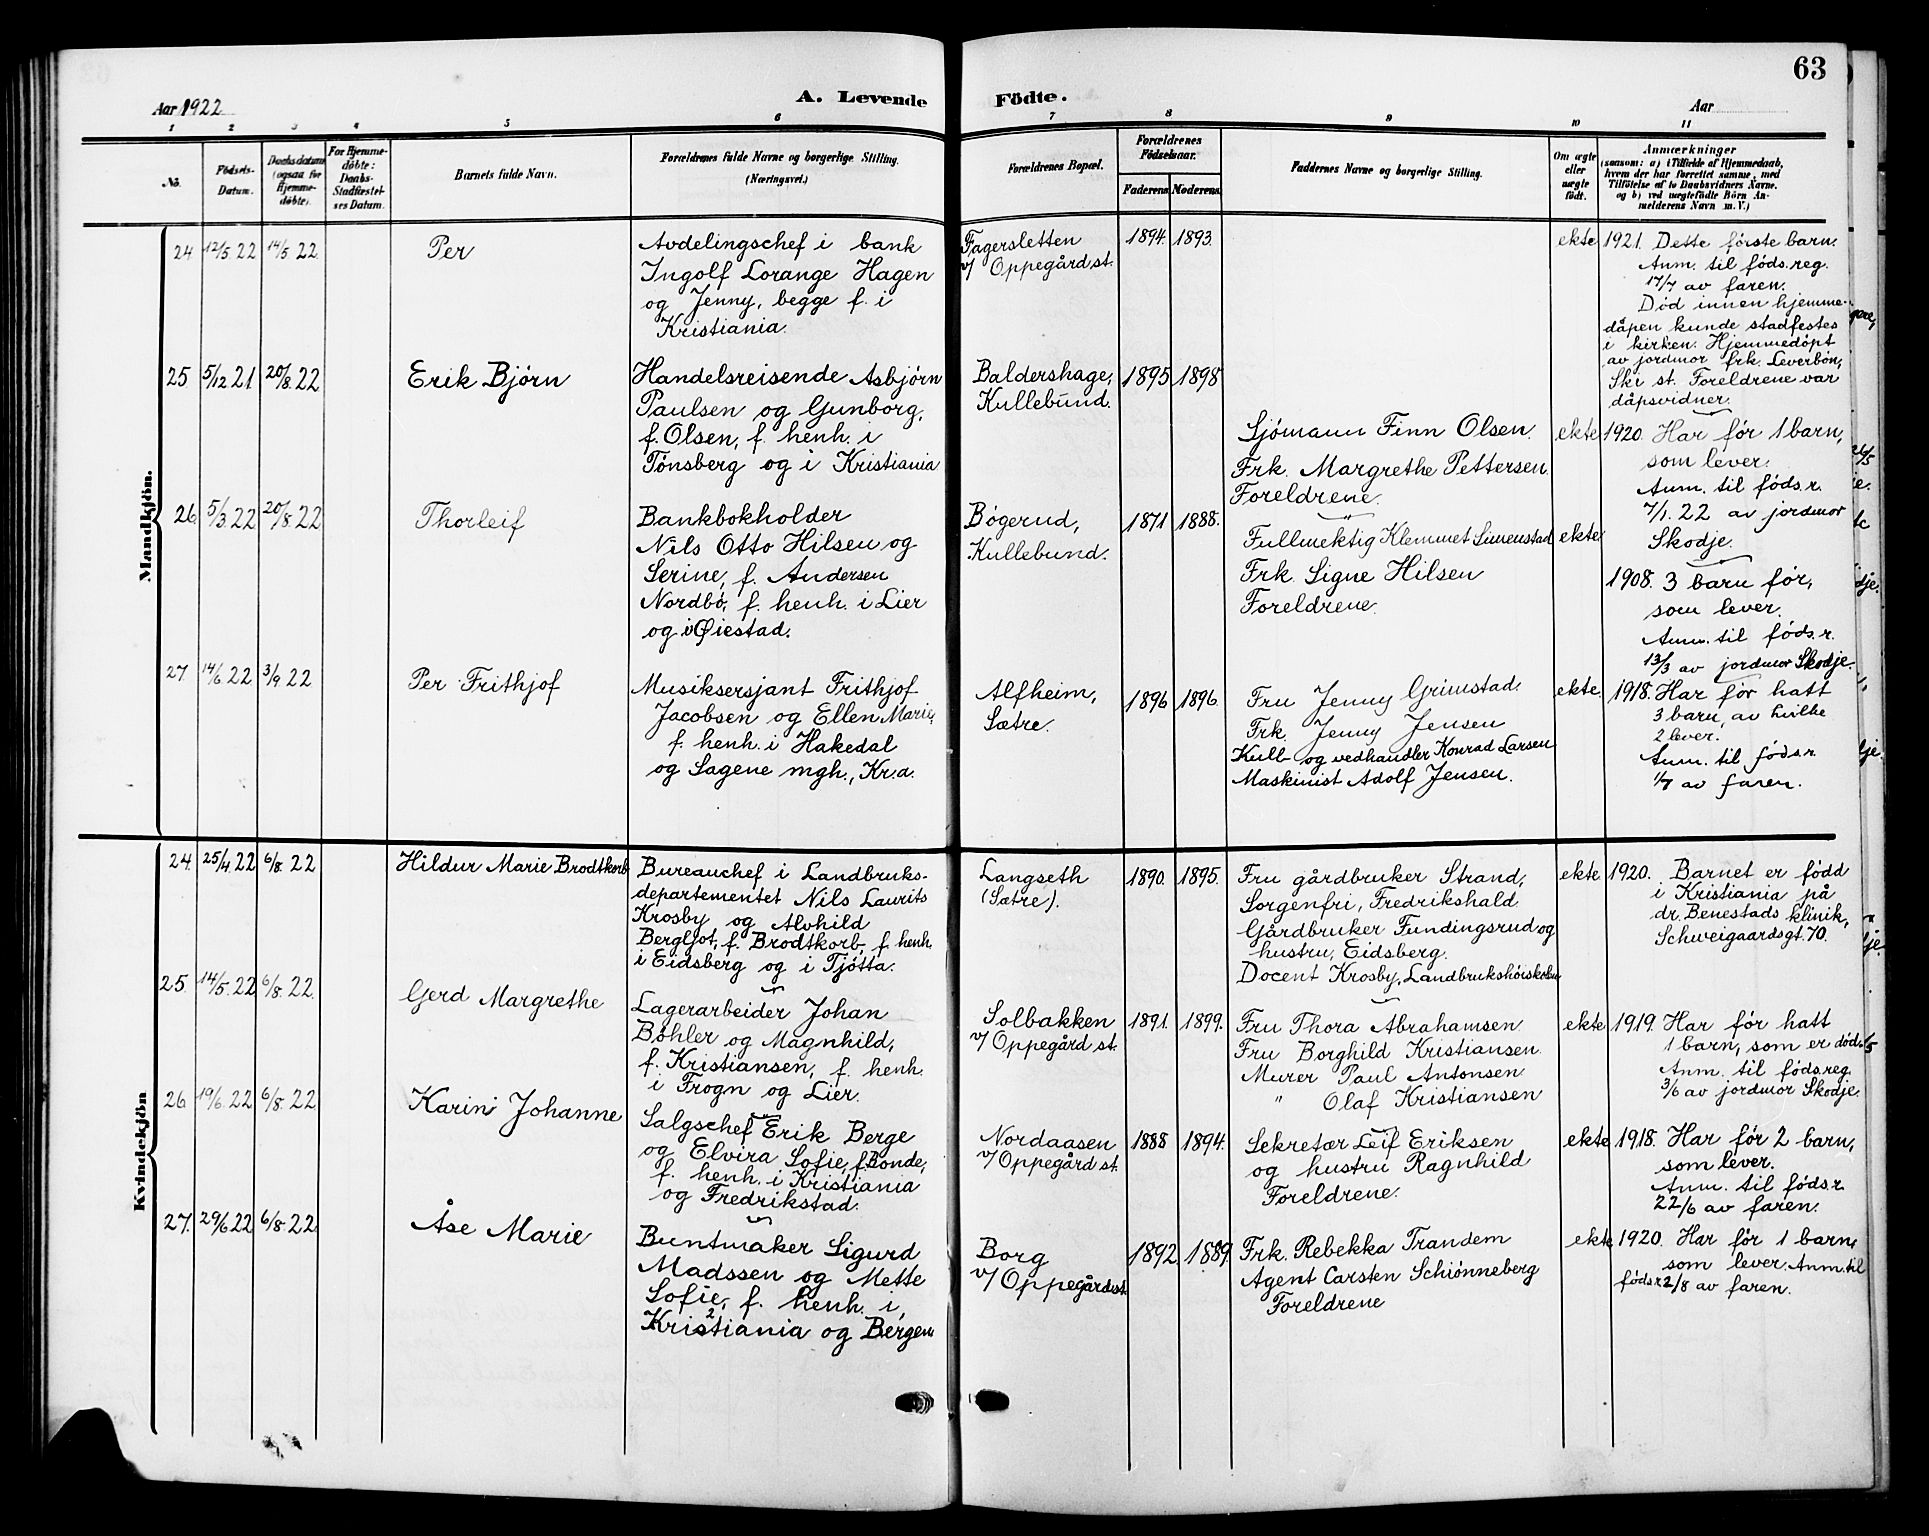 63
Aar 1922
A. Levende
Födte.
Aar
1 2 3 4 5 6 7 8 9 10 11
No.
Födsels-
Datum.
Daabsdatum
(ogsaa for
Hjemme-
döbte).
For Hjemme-
döbte:
Daabs-
Stadfæstel-
ses Datum.
Barnets fulde Navn.
Forældrenes fulde Navne og borgerlige Stilling.
(Næringsvei.)
Forældrenes Bopæl.
Forældrenes
Födselsaar.
Faderens. Moderens.
Faddernes Navne og borgerlige Stilling.
Om ægte
eller
uægte
født.
Anmærkninger
(saasom: a) i Tilfælde af Hjemmedaab,
hvem der har forrettet samme, med
Tilföielse af to Daabsvidners Navne.
og b) ved uægtefødte Börn An-
melderens Navn m. V.)
Mandkjön.
24 12/5 22 14/5 22 Per
Avdelingschef i bank
Ingolf Lorange Hagen
og Jenny, begge f. i
Kristiania.
Fagersletten
v/ Oppegård st.
1894. 1893.
ekte
1921. Dette første barn.
Anm. til føds.reg.
17/7 av faren.
Død innen hjemme-
dåpen kunde stadfestes
i kirken. Hjemmedøpt
av jordmor frk. Leverbøn,
Ski st. Foreldrene var
dåpsvidner.
25 5/12 21 20/8. 22 Erik Bjørn
Handelsreisende Asbjørn
Paulsen og Gunborg,
f. Olsen, f. henh. i
Tønsberg og i Kristiania
Baldershage,
Kullebund.
1895 1898
Sjømann Finn Olsen.
Frk. Margrethe Pettersen
Foreldrene.
ekte
1920. Har før 1 barn,
som lever.
Anm. til føds.r.
7/1. 22 av jordmor
Skodje.
26. 5/3 22 20/8. 22 Thorleif
Bankbokholder
Nils Otto Hilsen og
Serine, f. Andersen
Nordbø, f. henh. i Lier
og i Øiestad.
Bøgerud,
Kullebund.
1871 1888.
Fullmektig Klemmet Simenstad
Frk. Signe Hilsen
Foreldrene.
ekte
1908. 3 barn før,
som lever.
Anm. til føds.r.
13/3 av jordmor Skodje.
27. 14/6 22 3/9 22 Per Frithjof
Musiksersjant Frithjof
Jacobsen og Ellen Marie,
f. henh. i Hakedal
og Sagene mgh., Kr.a.
Alfheim,
Sætre.
1896 1896.
Fru Jenny Grimstad.
Frk. Jenny Jensen
Kull- og vedhandler Konrad Larsen
Maskinist Adolf Jensen.
ekte.
1918. Har før hatt
3 barn, av hvilke
2 lever.
Anm. til føds.r.
1/7 av faren.
Kvindekjön
24. 25/4 22 6/8. 22 Hildur Marie Brodtkorb
Bureauchef i Landbruks-
departementet Nils Laurits
Krosby og Alvhild
Bergljot, f. Brodtkorb, f. henh.
i Eidsberg og i Tjøtta.
Langseth
(Sætre).
1890. 1895.
Fru gårdbruker Strand,
Sorgenfri, Fredrikshald
Gårdbruker Fundingsrud og
hustru, Eidsberg.
Docent Krosby, Landbrukshøiskolen
ekte
1920. Barnet er född
i Kristiania på
dr. Benestads klinik,
Schweigaardsgt. 70.
25. 14/5. 22 6/8. 22. Gerd Margrethe
Lagerarbeider Johan
Bøhler og Magnhild,
f. Kristiansen, f. henh.
i Frogn og Lier.
Solbakken
v/ Oppegård st.
1891. 1899.
Fru Thora Abrahamsen
Fru Borghild Kristiansen.
Murer Paul Antonsen
" Olaf Kristiansen
ekte
1919. Har før hatt
1 barn, som er død.
Anm. til føds.reg.
3/6 av jordmor Skodje.
26. 19/6. 22 6/8. 22 Karin Johanne
Salgschef Erik Berge
og Elvira Sofie, f. Bonde,
f. henh. i Kristiania
og Fredrikstad.
Nordaasen
v/ Oppegård st.
1888 1894.
Sekretær Leif Eriksen
og hustru Ragnhild
Foreldrene.
ekte
1918. Har før 2 barn,
som lever.
Anm. til føds.r.
22/6 av faren.
27. 29/6 22 6/8. 22. Åse Marie
Buntmaker Sigurd
Madssen og Mette
Sofie, f. henh. i
Kristiania og Bergen
2
Borg
v/ Oppegård st.
1892. 1889.
Frk. Rebekka Trandem
Agent Carsten Schiønneberg
Foreldrene
ekte
1920. Har før 1 barn,
som lever. Anm. til
føds.r. 2/8 av faren.